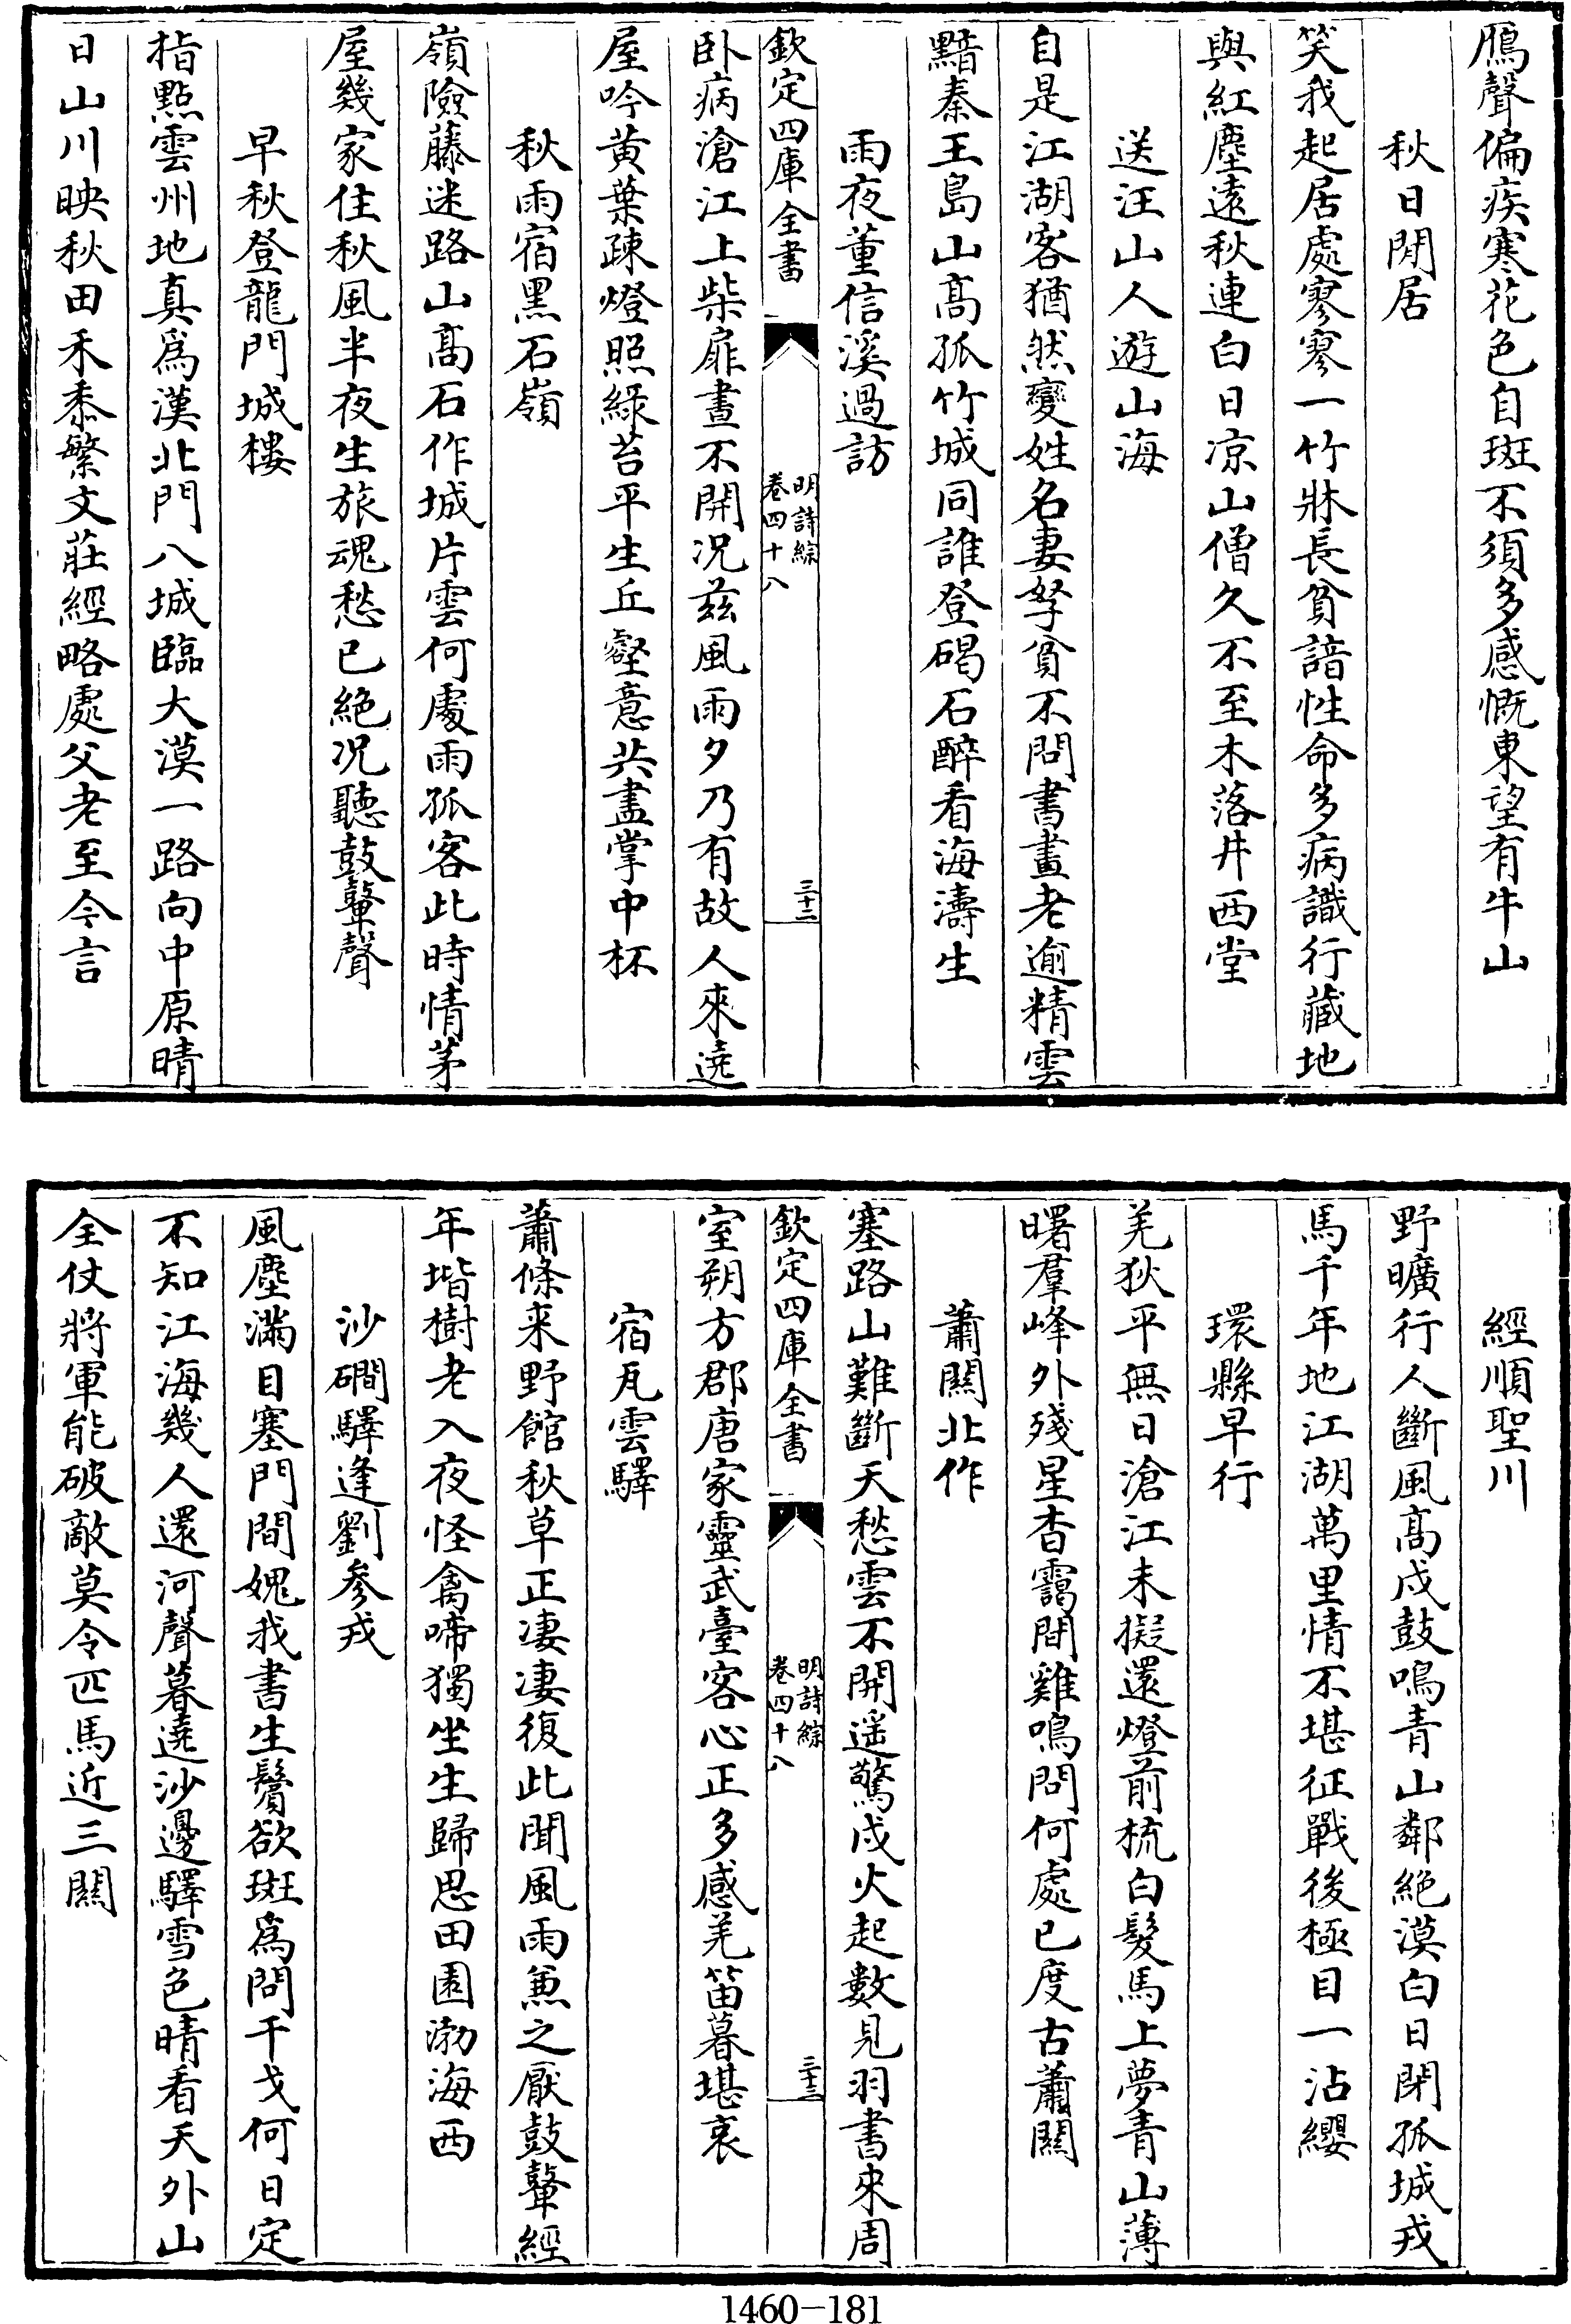 鴈聲偏疾寒花色自斑不須多感慨東望有牛山
秋日閒居
笑我起居處寥寥一竹牀長貧諳性命多病識行藏地
與紅塵遠秋連白日凉山僧久不至木落井西堂
送汪山人遊山海
自是江湖客猶然變姓名妻孥貧不問書畫老逾精雲
黯秦王島山髙孤竹城同誰登碣石醉看海濤生
雨夜董信溪過訪
欽定四庫全書
明詩綜
卷四十八
三十二
卧病滄江上柴扉晝不開况兹風雨夕乃有故人來遶
屋吟黄葉疎燈照緑苔平生丘壑意共盡掌中杯
秋雨宿黑石嶺
嶺險藤迷路山髙石作城片雲何處雨孤客此時情茅
屋幾家住秋風半夜生旅魂愁已絶况聽鼓鼙聲
早秋登龍門城樓
指點雲州地真爲漢北門八城臨大漠一路向中原晴
日山川映秋田禾黍繁文莊經略處父老至今言
經順聖川
野曠行人斷風髙戍鼓鳴青山鄰絶漠白日閉孤城戎
馬千年地江湖萬里情不堪征戰後極目一沾纓
環縣早行
羌狄平無日滄江未擬還燈前梳白髮馬上夢青山薄
曙羣峰外殘星杳靄間雞鳴問何處已度古蕭關
蕭關北作
塞路山難斷天愁雲不開遥驚戍火起數見羽書來周
欽定四庫全書
明詩綜
卷四十八
三十三
室朔方郡唐家靈武臺客心正多感羌笛暮堪哀
宿瓦雲驛
蕭條来野館秋草正凄凄復此聞風雨兼之厭鼓鼙經
年堦樹老入夜怪禽啼獨坐生歸思田園渤海西
沙磵驛逢劉參戎
風塵滿目塞門間媿我書生鬢欲斑爲問干戈何日定
不知江海幾人還河聲暮遶沙邊驛雪色晴看天外山
全仗將軍能破敵莫令匹馬近三關
1460-181